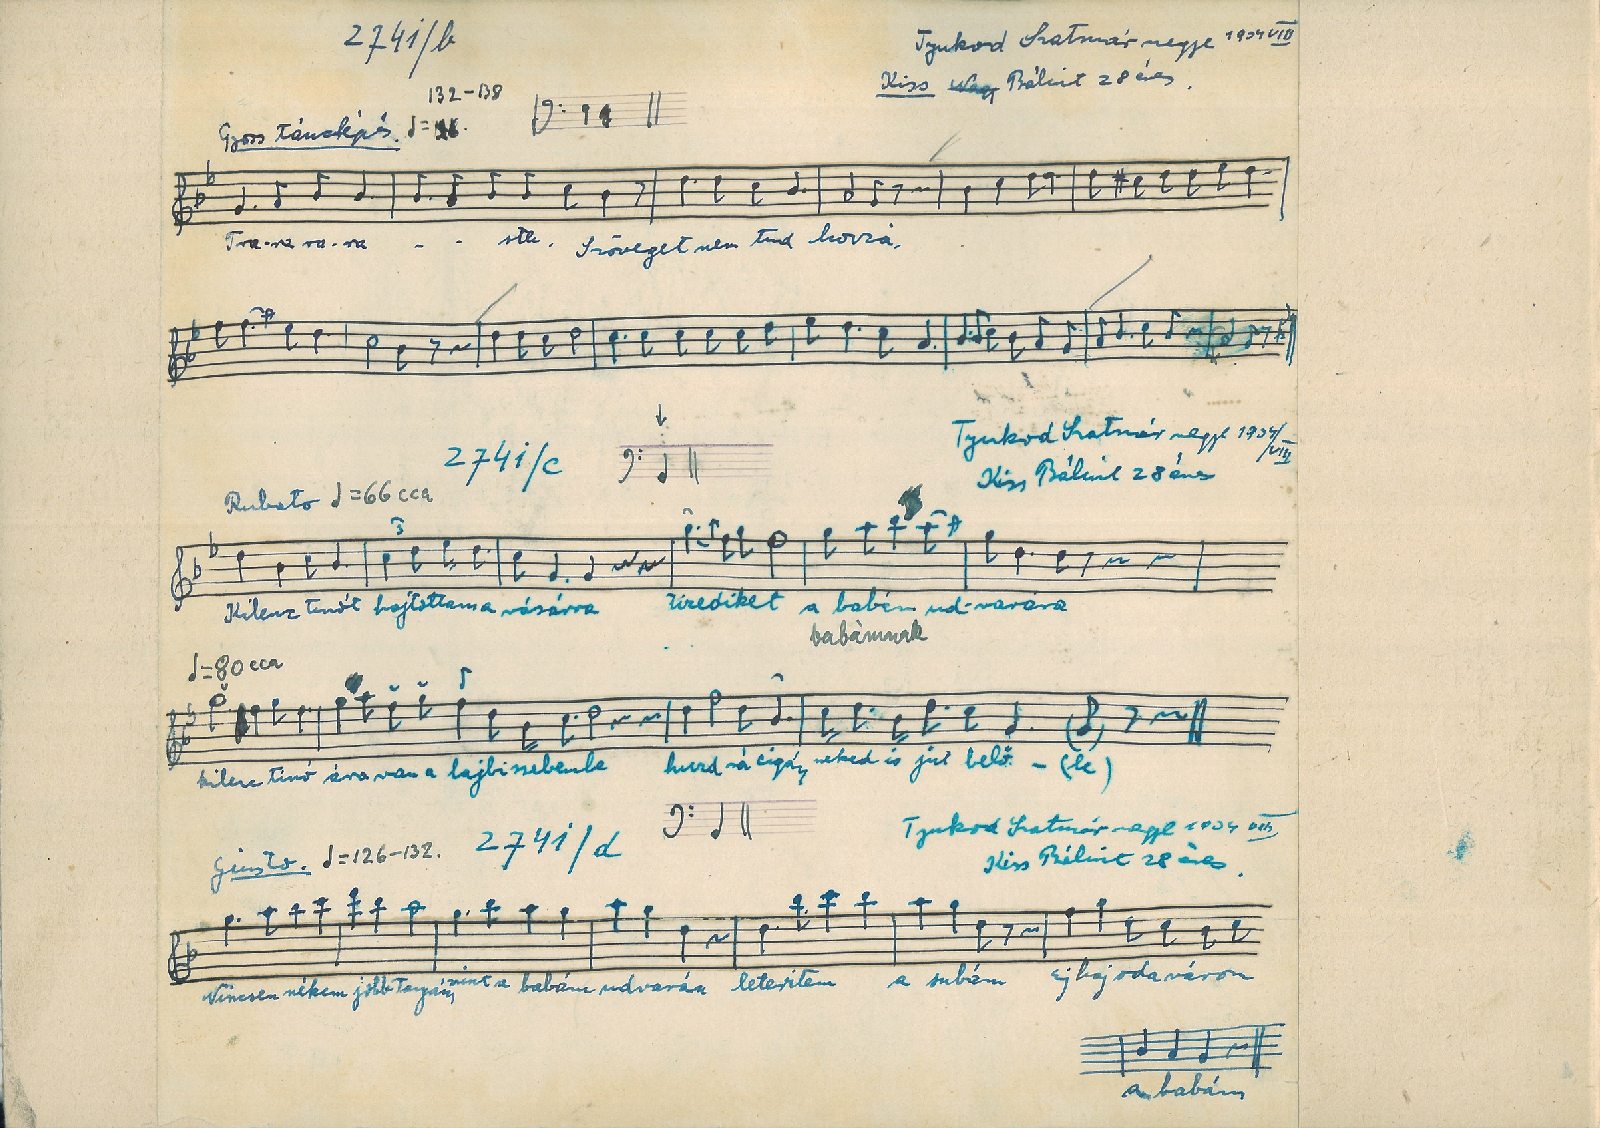 274i/b
Tyukod Szatmár megye 1934 VIII
Kiss Bálint 28 éves.
132-138
Gyors tánclépés. ♩=
Tra-ra ra-ra - - stb. Szöveget nem tud hozzá.
274i/c
Tyukod Szatmár megye 1934/VIII
Kiss Bálint 28 éves
Rubato ♩=66 cca
Kilenc tinót hajtottam a vásárra tizediket a babám ud-varára
babámnak
♩=80 cca
kilenc tinó ára van a lajbi zsebembe huzd rá cigány neked is jut belő - (le)
274i/d
Tyukod Szatmár megye 1934 VIII
Kiss Bálint 28 éves.
Giusto. ♩=126-132.
Nincsen nékem jobb tanyám mint a babám udvarán leteritem a subám ej haj oda várom
a babám